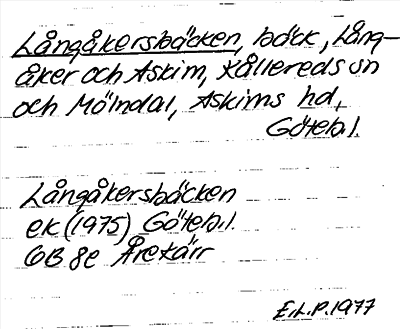 Långåkersbäcken, bäck, Lång-
åker och Askim, Kållereds sn
och Mölndal, Askims hd,
Göteb.l.
Långåkersbäcken
ek (1975) Göteb.l.
6B 8e Åretärr
E.L.P. 1977